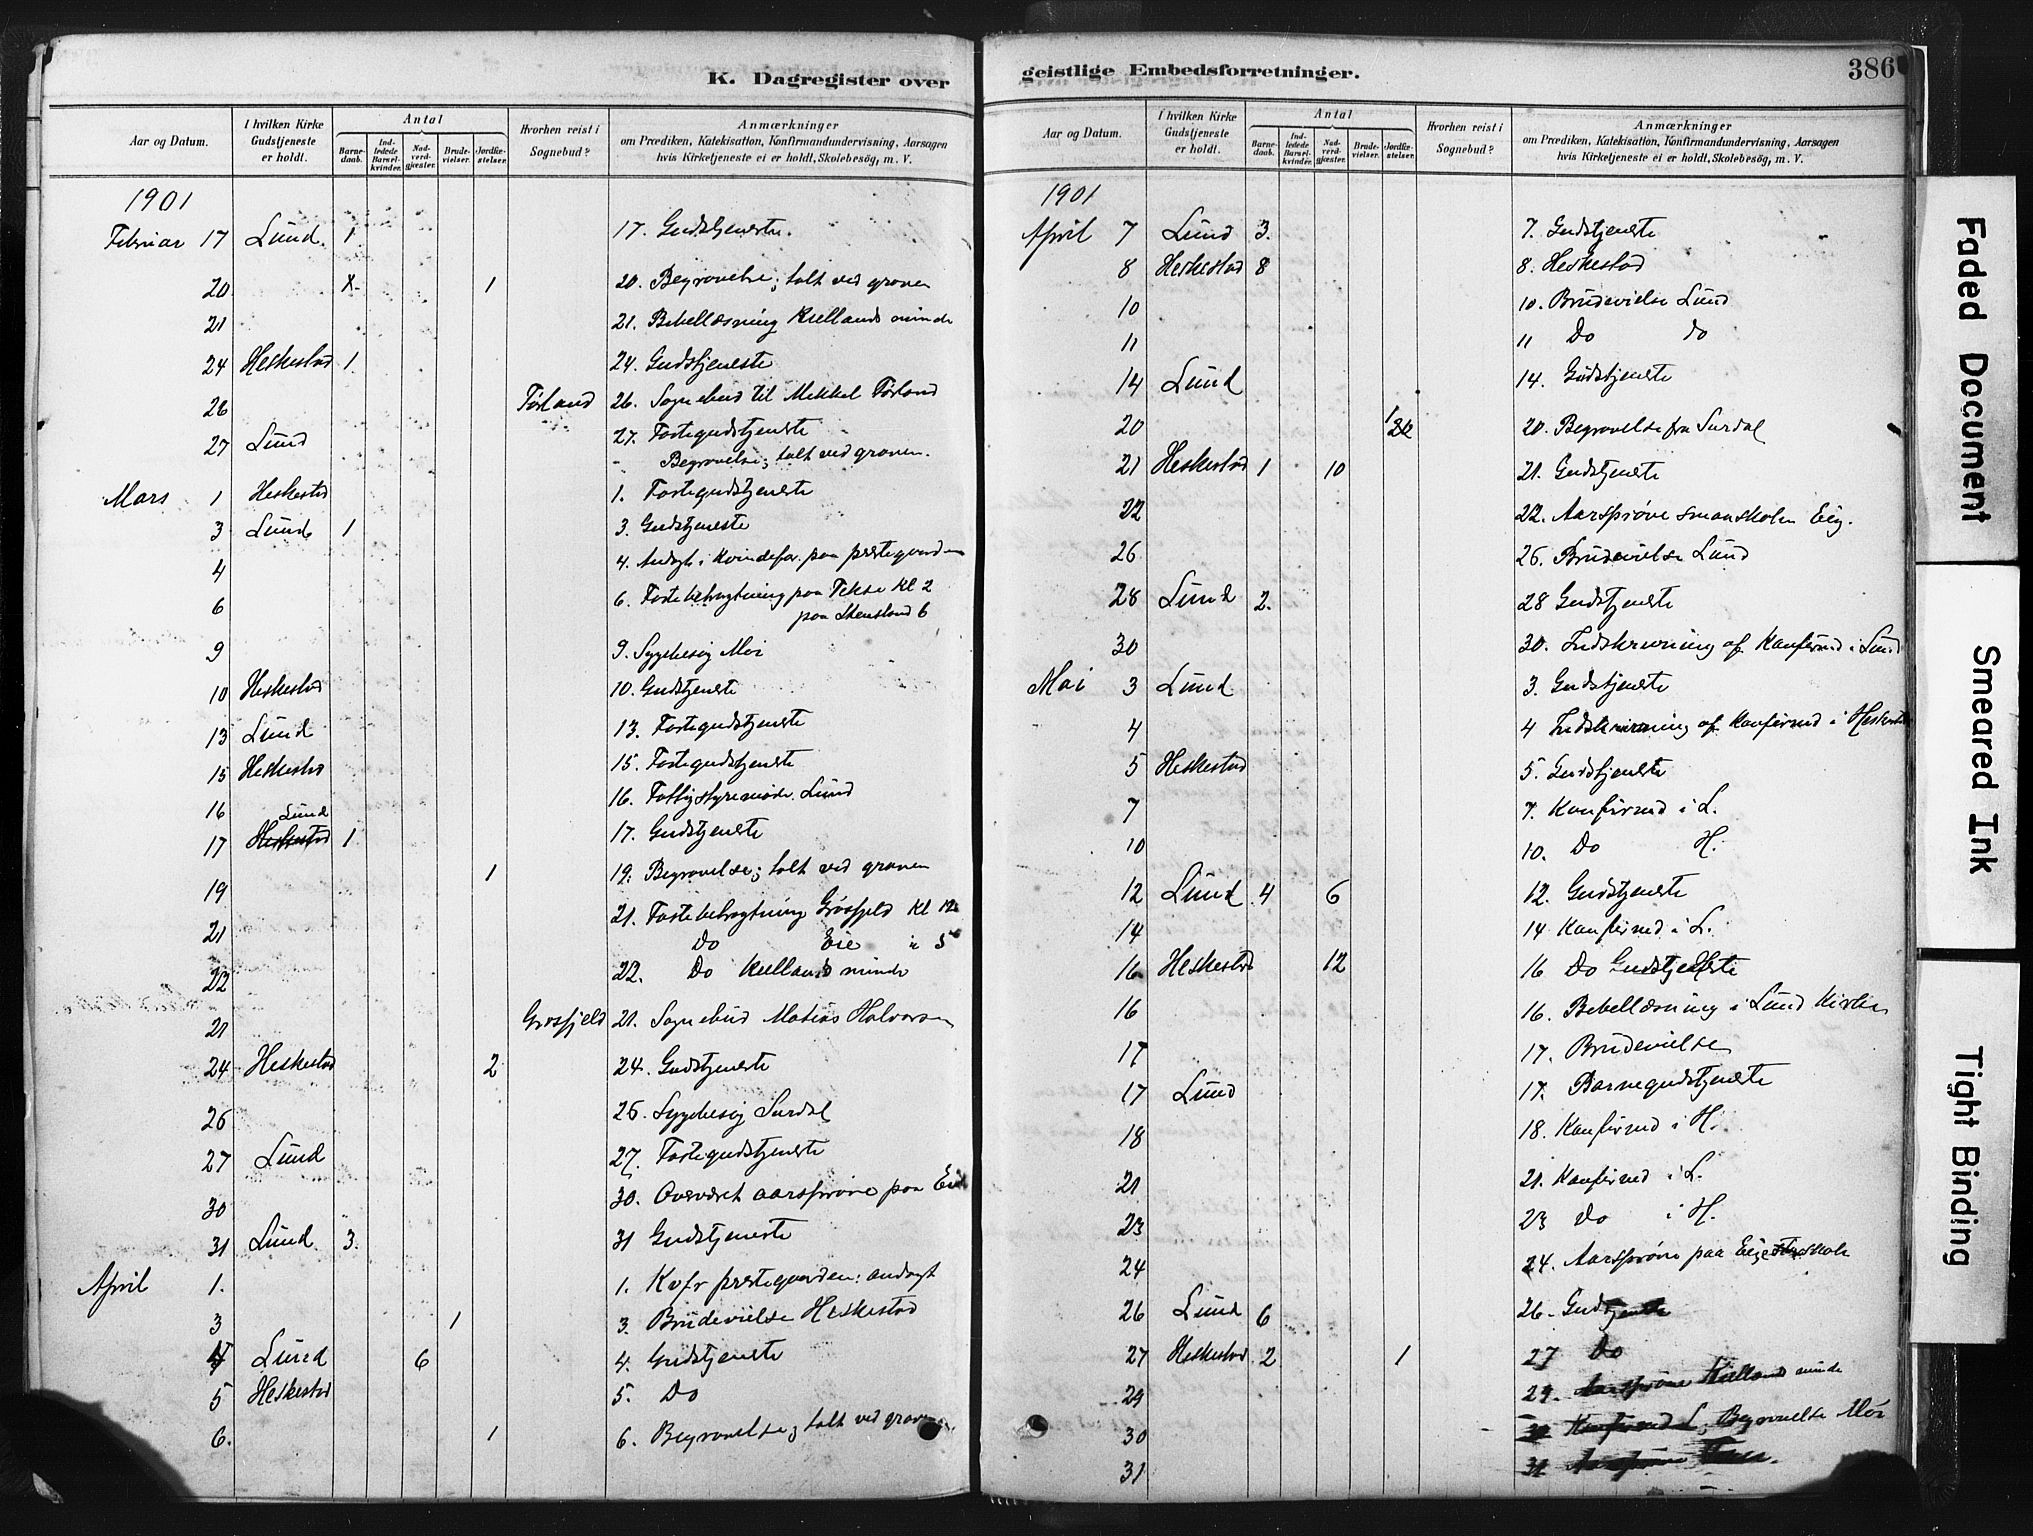 K. Dagregister over
Aar og Datum.
I hvilken Kirke Gudstjeneste er holdt.
Antal
Barnedaab.
Indledede Barselkvinder.
Nadverdgjæster.
Brudevielser.
Jordfæstelser.
Hvorhen reist i Sognebud?
Anmærkninger
om Prædiken, Katekisation, Konfirmandundervisning, Aarsagen
hvis Kirketjeneste ei er holdt, Skolebesøg, m. V.
1901
Februar 17 Lund. 1. 17. Gudstjeneste.
20 X. 1 20. Begravelse; talt ved graven
21 21. Bibellæsning Kiellands minde
24 Heskestad 1. 24. Gudstjeneste
26 Førland 26. Sognebud til Mikkel Førland
27 Lund 27. Fastegudstjeneste
- Begravelse; talt ved graven.
Mars 1 Heskestad 1. Fastegudstjeneste
3 Lund 1 3. Gudstjeneste
4 4. Andagt i Kvindefor. paa prestegaarden
6 6. Fastebetragtning paa Tekse Kl 2
paa Steinsland 6
9 9. Sygebesøg Moi
10 Heskestad 10. Gudstjeneste
13 Lund 13. Fastegudstjeneste
15 Heskestad 15. Fastegudstjeneste
16 16. Fattigstyremøde. Lund
Lund
17 Heskestad 1 17. Gudstjeneste
19 1 19. Begravelse; talt ved graven
21 21. Fastebetragtning Grøsfjeld Kl 12
Do Eie " 5
22 22. Do Kiellands minde
21 Grøsfjeld 21. Sognebud Matias Halvorsen
24 Heskestad 2 24. Gudstjeneste
26 26. Sygebesøg Surdal
27 Lund 27. Fastegudstjeneste
30 30. Overværet aarsprøve paa Eie
31 Lund. 3. 31 Gudstjeneste
April 1. 1. Kvfr prestegaarden: andagt
3 1 3. Brudevielse Heskestad
4 Lund 6 4. Gudstjeneste
5 Heskestad 5. Do
6. 1 6. Begravelse; talt ved graven
geistlige Embedsforretninger.
386
Aar og Datum.
I hvilken Kirke Gudstjeneste er holdt.
Antal
Barnedaab.
Indledede Barselkvinder.
Nadverdgjæster.
Brudevielser.
Jordfæstelser.
Hvorhen reist i Sognebud?
Anmærkninger
om Prædiken, Katekisation, Konfirmandundervisning, Aarsagen
hvis Kirketjeneste ei er holdt, Skolebesøg, m. V.
1901
April 7 Lund 3. 7. Gudstjeneste
8 Heskestad 8 8. Heskestad
10 10. Brudevielse Lund
11 11 Do do
14 Lund 14. Gudstjeneste
20 1 20. Begravelse fra Surdal
21 Heskestad 1 10 21. Gudstjeneste
22 22. Aarsprøve smaaskolen Eig.
26 26. Brudevielse Lund
28 Lund 2. 28 Gudstjeneste
30 30. Indskrivning af Konfirmd i Lund
Mai 3 Lund 3. Gudstjeneste
4 4 Indskrivning af Konfirmd i Heskestad
5 Heskestad 5. Gudstjeneste
7 7. Konfirmd i L.
10 10. Do H.
12 Lund 4 6 12. Gudstjeneste
14 14 Konfirmd i L.
16 Heskestad 12 16 Do Gudstjeneste
16 16. Bibellæsning i Lund Kirke
17 17. Brudevielse
17 Lund 17. Barnegudstjeneste
18 18. Konfirmd i H.
21 21. Konfirmd i L.
23 23 Do i H.
24 24. Aarsprøve paa Eige skole
26 Lund 6 26. Gudstjeneste
27 Heskestad 2 1 27 Do
29 29. Aarsprøve Kiellands minde
30 30 Konfirmd L, Begravelse Moi
31 31 Aarsprøve
Faded Document
Smeared Ink
Tight Binding